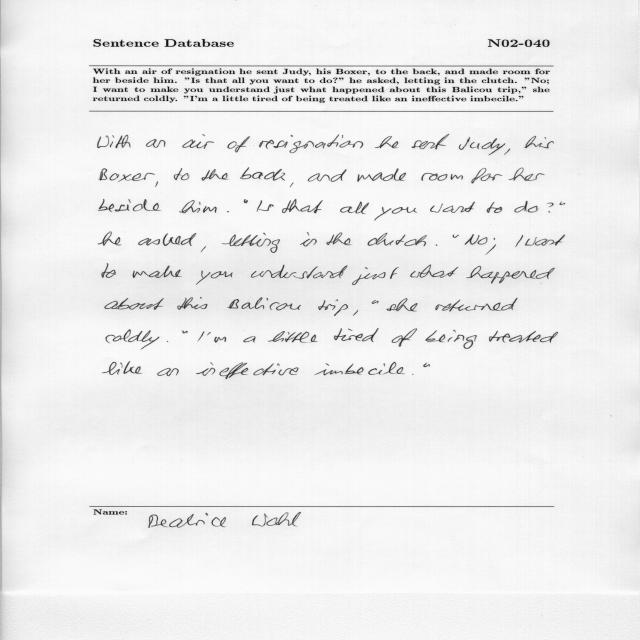 Sentence Database N02-040
With an air of resignation he sent Judy, his Boxer, to the back, and made room for
her beside him. "Is that all you want to do?" he asked, letting in the clutch. "No;
I want to make you understand just what happened about this Balicou trip," she
returned coldly. "I'm a little tired of being treated like an ineffective imbecile."
With an air of resignation he sent Judy, his
Boxer, to the back, and made room for her
beside him. "Is that all you want to do?"
he asked, letting in the clutch. "No; I want
to make you understand just what happened
about this Balicou trip," she returned
coldly. "I'm a little tired of being treated
like an ineffective imbecile."
Name: Beatrice Wahl